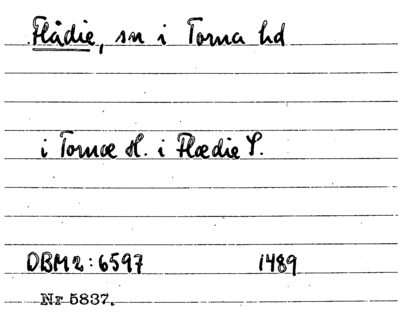 Flädie, sn i Torna hd
i Tornæ H. i Flædie S.
DBM2:6597 1489
Nr 5837.